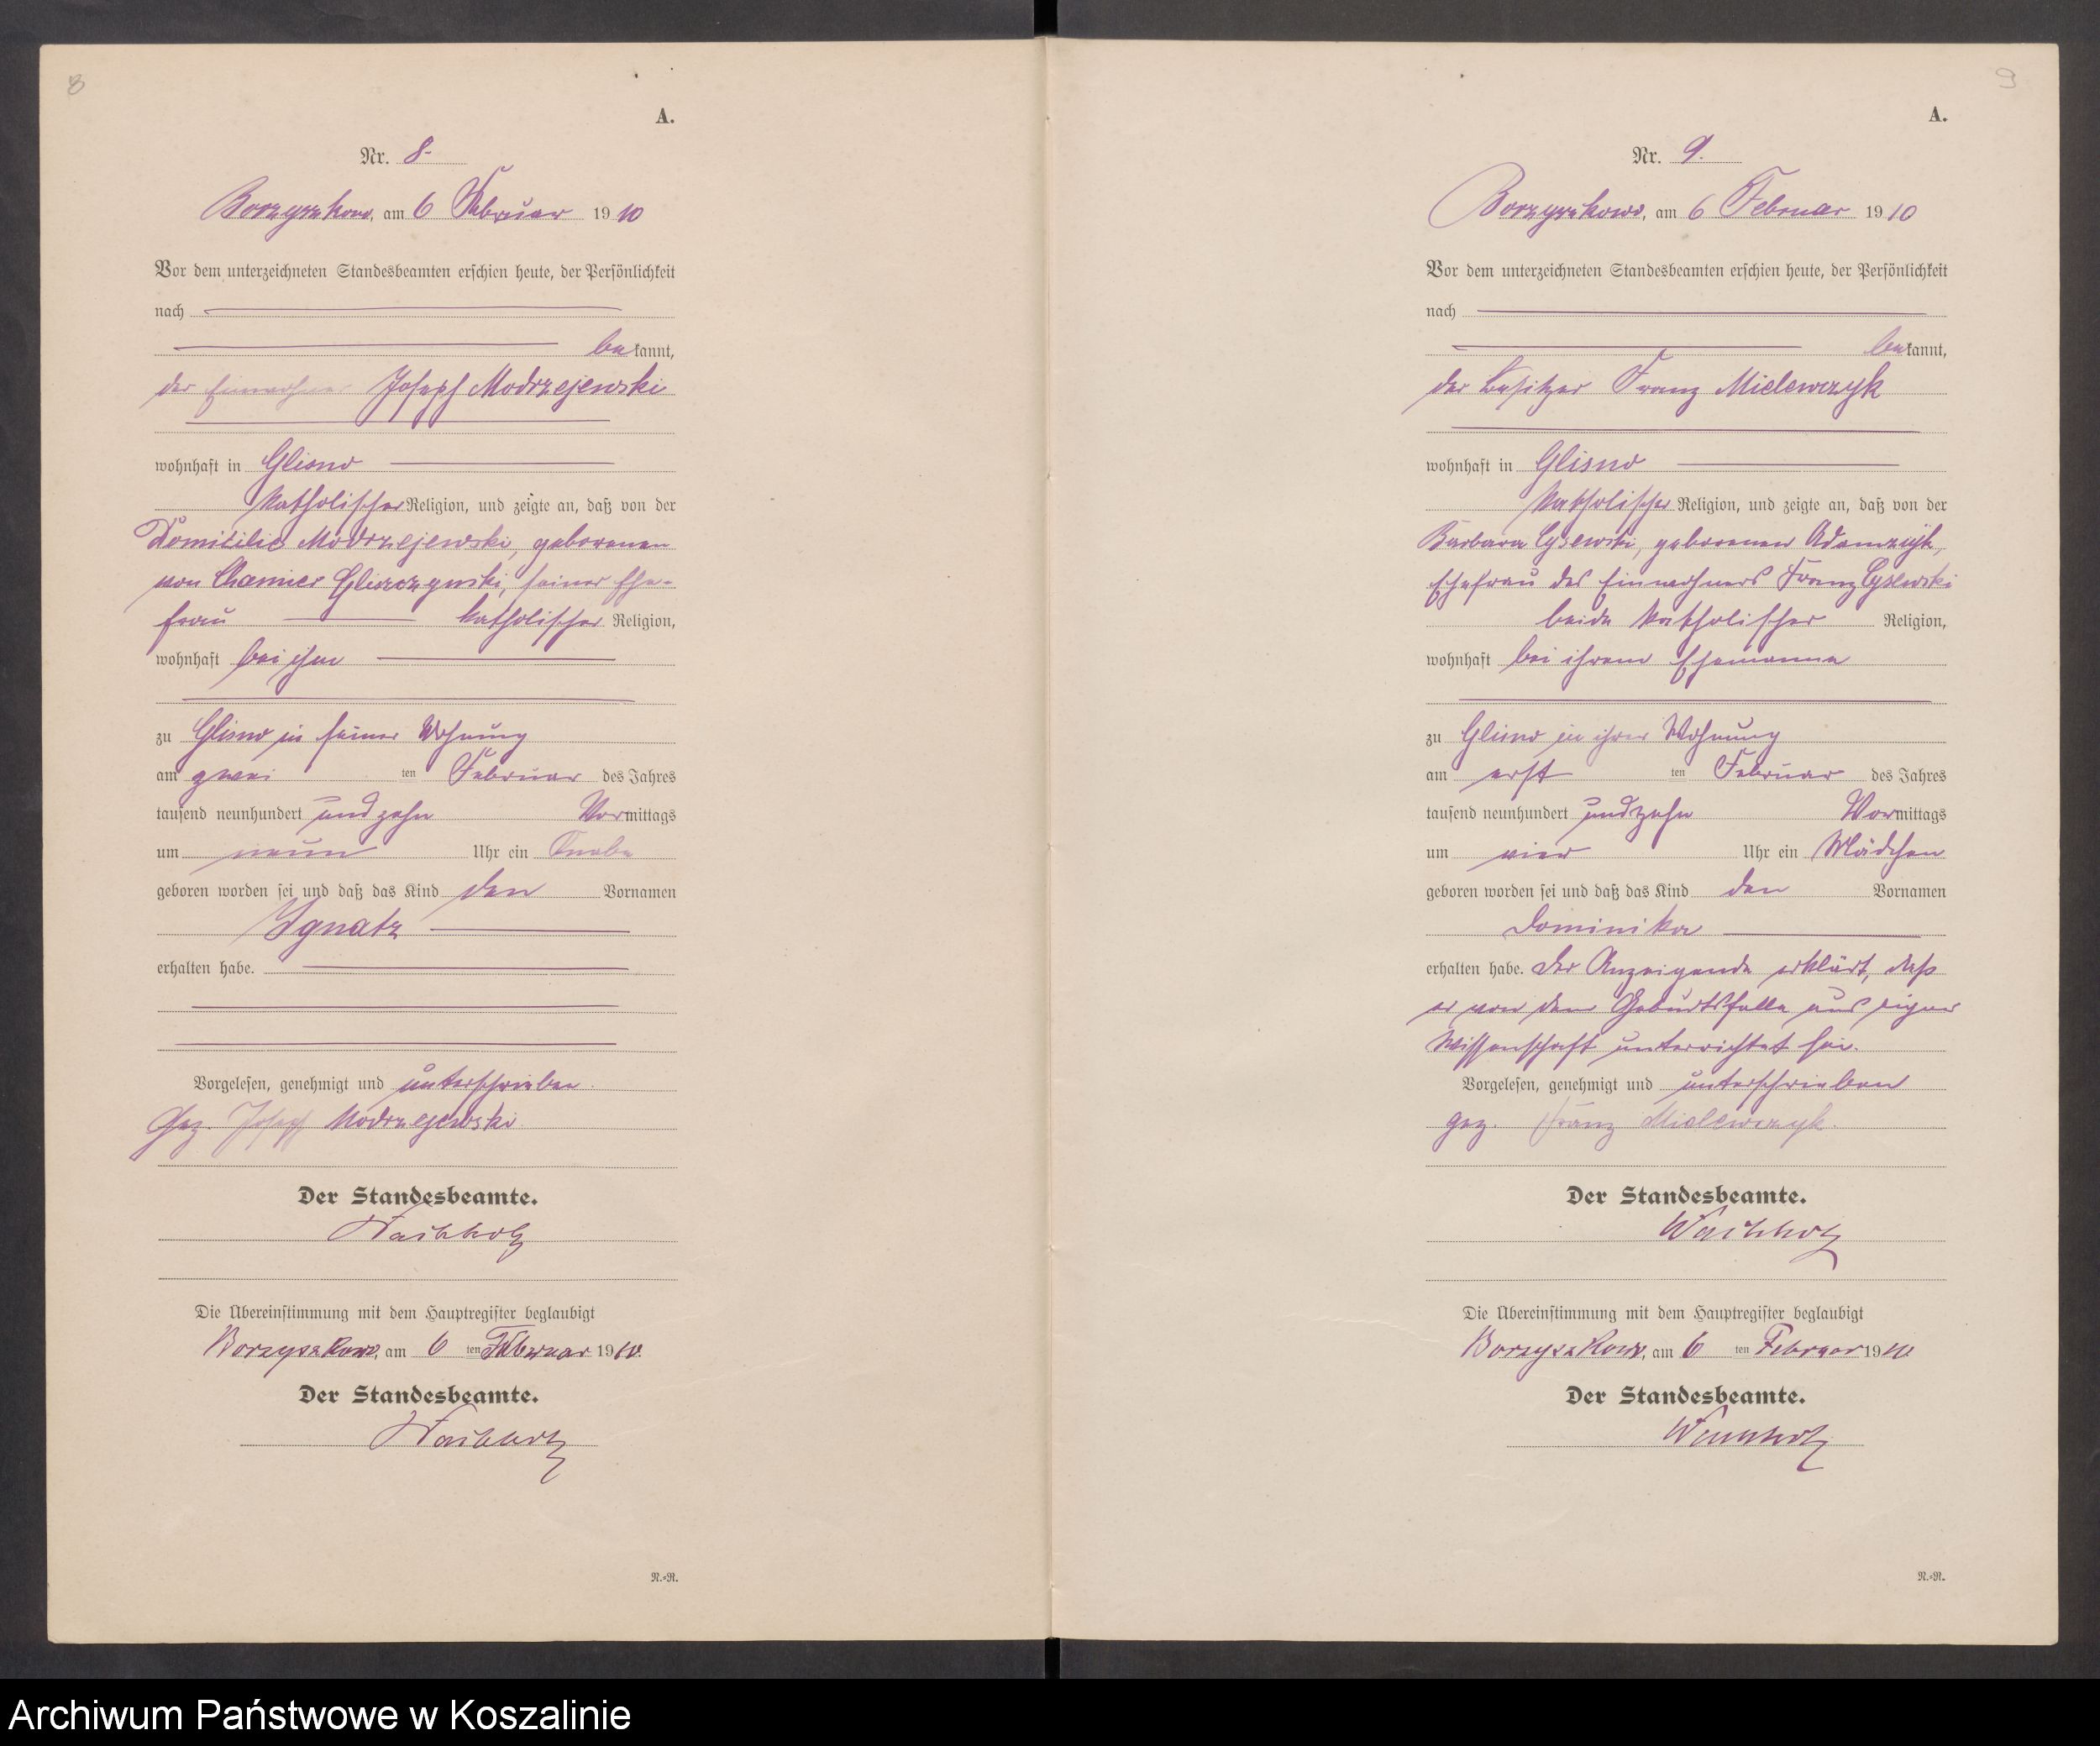 8
A.
Nr. 8.
Borzyszkowo, am 6 Februar 1910
Vor dem unterzeichneten Standesbeamten erschien heute, der Persönlichkeit
nach
bekannt,
der Einwohner Joseph Modrzejewski
wohnhaft in Glisno
katholischer Religion, und zeigte an, daß von der
Domicilie Modrzejewski, geborenen
von Chamier Gliszczynski, seiner Ehe-
frau katholischer Religion,
wohnhaft bei ihm
zu Glisno in seiner Wohnung
am zwei ten Februar des Jahres
tausend neunhundert und zehn Vormittags
um neun Uhr ein Knabe
geboren worden sei und daß das Kind den Vornamen
Ignatz
erhalten habe.
Vorgelesen, genehmigt und unterschrieben.
Gez. Joseph Modrzejewski.
Der Standesbeamte.
Die Übereinstimmung mit dem Hauptregister beglaubigt
Borzyszkowo, am 6 ten Februar 1910.
Der Standesbeamte.
N.=R.
9
A.
Nr. 9.
Borzyszkowo, am 6 Februar 1910
Vor dem unterzeichneten Standesbeamten erschien heute, der Persönlichkeit
nach
bekannt,
der Besitzer Franz Mielewczyk
wohnhaft in Glisno
katholischer Religion, und zeigte an, daß von der
Barbara Cysewski, geborenen Adamczyk,
Ehefrau des Einwohners Franz Cysewski
beide katholischer Religion,
wohnhaft bei ihrem Ehemanne
zu Glisno in ihrer Wohnung
am erst ten Februar des Jahres
tausend neunhundert und zehn Vormittags
um vier Uhr ein Mädchen
geboren worden sei und daß das Kind den Vornamen
Dominika
erhalten habe. Der Anzeigende erklärt, daß
er von dem Geburtsfalle aus eigner
Wissenschaft unterrichtet sei.
Vorgelesen, genehmigt und unterschrieben
gez. Franz Mielewczyk.
Der Standesbeamte.
Die Übereinstimmung mit dem Hauptregister beglaubigt
Borzyszkowo, am 6 ten Februar 1910
Der Standesbeamte.
N.=R.
Archiwum Państwowe w Koszalinie